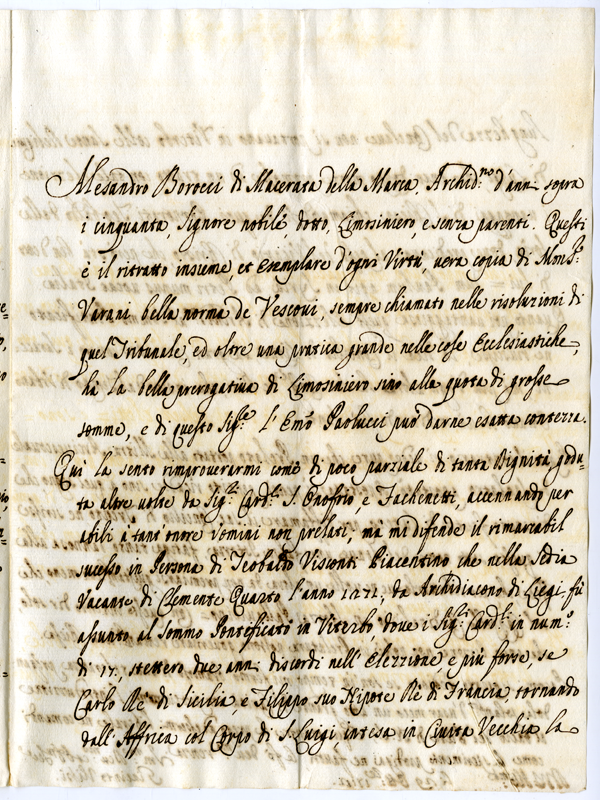 Alesandro Borocci di Macerata della Marca, Archid:no d'anni sopra
i cinquanta, Signore nobile dotto, Limosiniero, e senza parenti. Questi
è il ritratto insieme, et esemplare d'ogni Virtù, vera copia di Mons:r
Varani bella norma de Vescoui, sempre chiamato nelle risoluzioni di
quel Tribunale, ed oltre una pratica grande nelle cose Ecclesiastiche,
hà la bella prerogatiua di Limosiniero sino alla quota di grosse
somme, e di questo Sig:re l'Emo Paolucci può darne esatta contezza.
Quì la sento rimprouerarmi come di poco parziale di tanta Dignità godu-
ta altre uolte da Sig:ri Card:li S. Onoffrio, e Fachenetti, accennando per
abili a tant'onore uomini non prelati, mà mi difende il rimarcabil
sucesso in Persona di Teobaldo Visconti Piacentino che nella Sedia
Vacante di Clemente Quarto l'anno 1271, da Archidiacono di Liegi, fù
assunto al Sommo Ponteficato in Viterbo, doue i Sig:ri Card:li in num:o
di 17, stettero due anni discordi nell'Elezzione, e più forse, se
Carlo Rè di Sicilia, e Filippo suo Nipote Rè di Francia, tornando
dall'Affrica col Corpo di S. Luigi, intesa in Ciuita Vecchia la